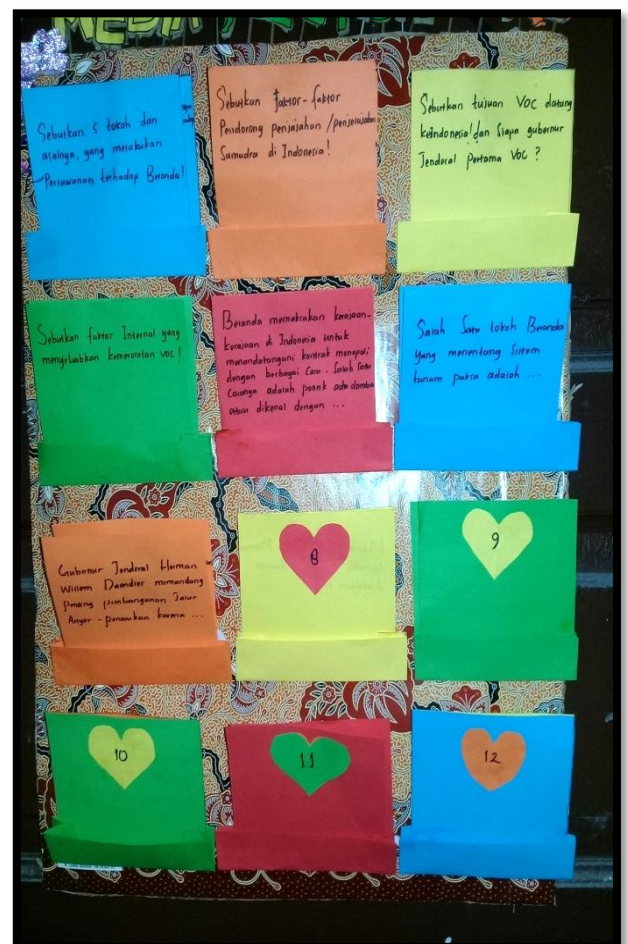 MEDIA
Sebutkan 5 tokoh dan
asalnya, yang melakukan
Perlawanan terhadap Belanda!
Sebutkan faktor-faktor
Pendorong penjajahan/penjelajahan
Samudra di Indonesia!
Sebutkan tujuan VOC datang
keIndonesia! dan Siapa gubernur
Jendral pertama VOC ?
Sebutkan faktor Internal yang
menyebabkan kemerosotan VOC!
Belanda memaksakan kerajaan-
kerajaan di Indonesia untuk
menandatangani kontrak monopoli
dengan berbagai Cara. Salah satu
Caranya adalah politik adu domba
atau dikenal dengan ...
Salah Satu tokoh Belanda
yang menentang Sistem
tanam paksa adalah ...
Gubernur Jenderal Herman
Willem Daendles memandang
penting pembangunan Jalur
Anyer - panarukan karena ...
8
9
10
11
12